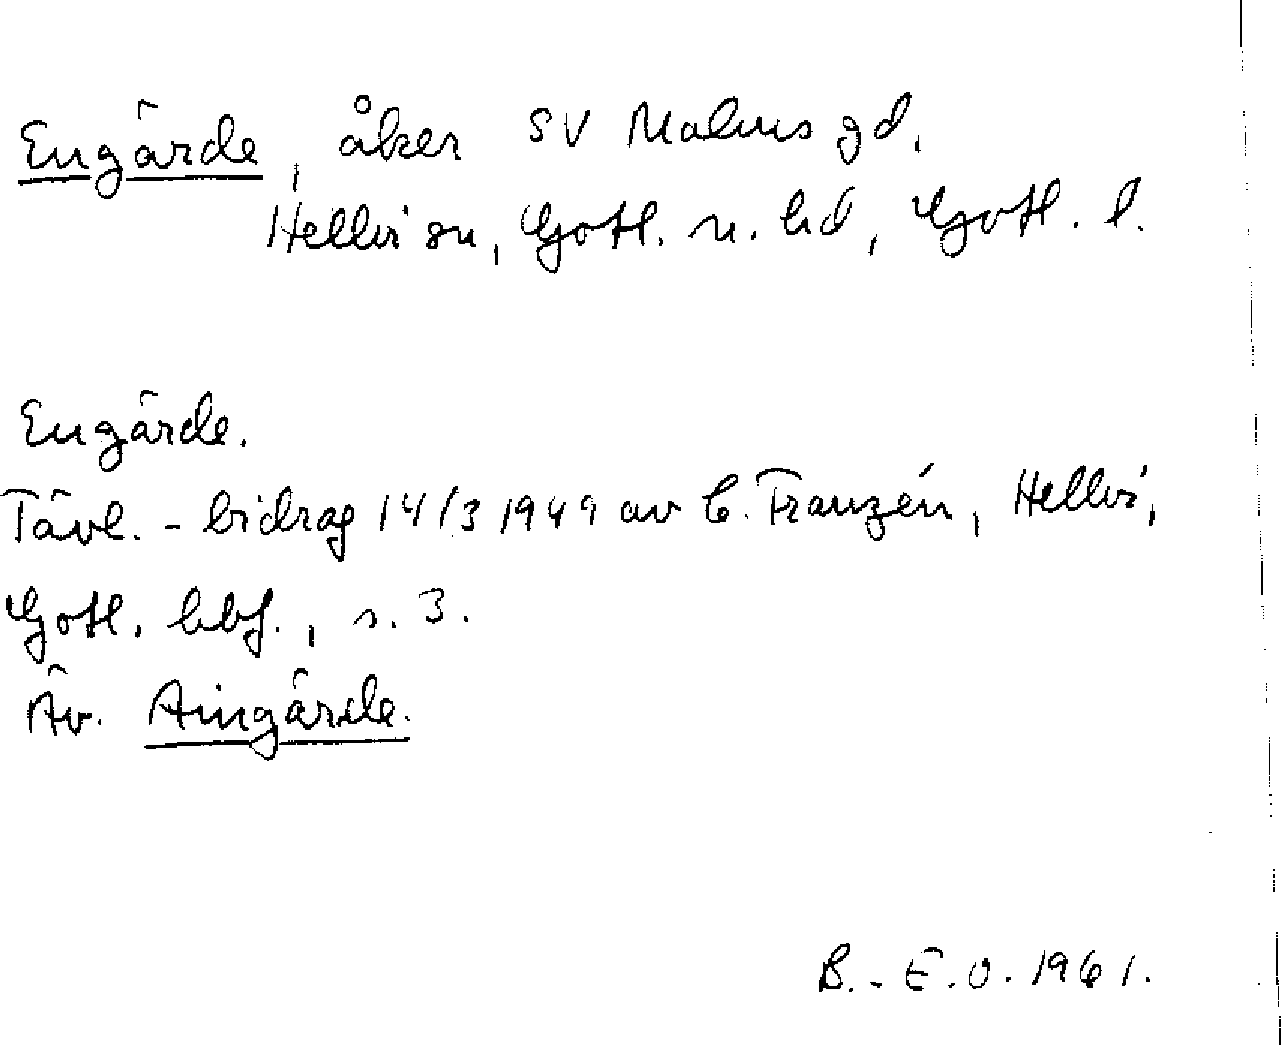 Engärde, åker SV Malms gd.
Hellvi sn, Gotl. n. hd, Gotl. l.
Engärde.
Tävl. - bidrag 14/3 1949 av C. Franzén, Hellvi,
Gotl. hbf., s. 3.
Äv. Aingärde.
B. - E. O. 1961.